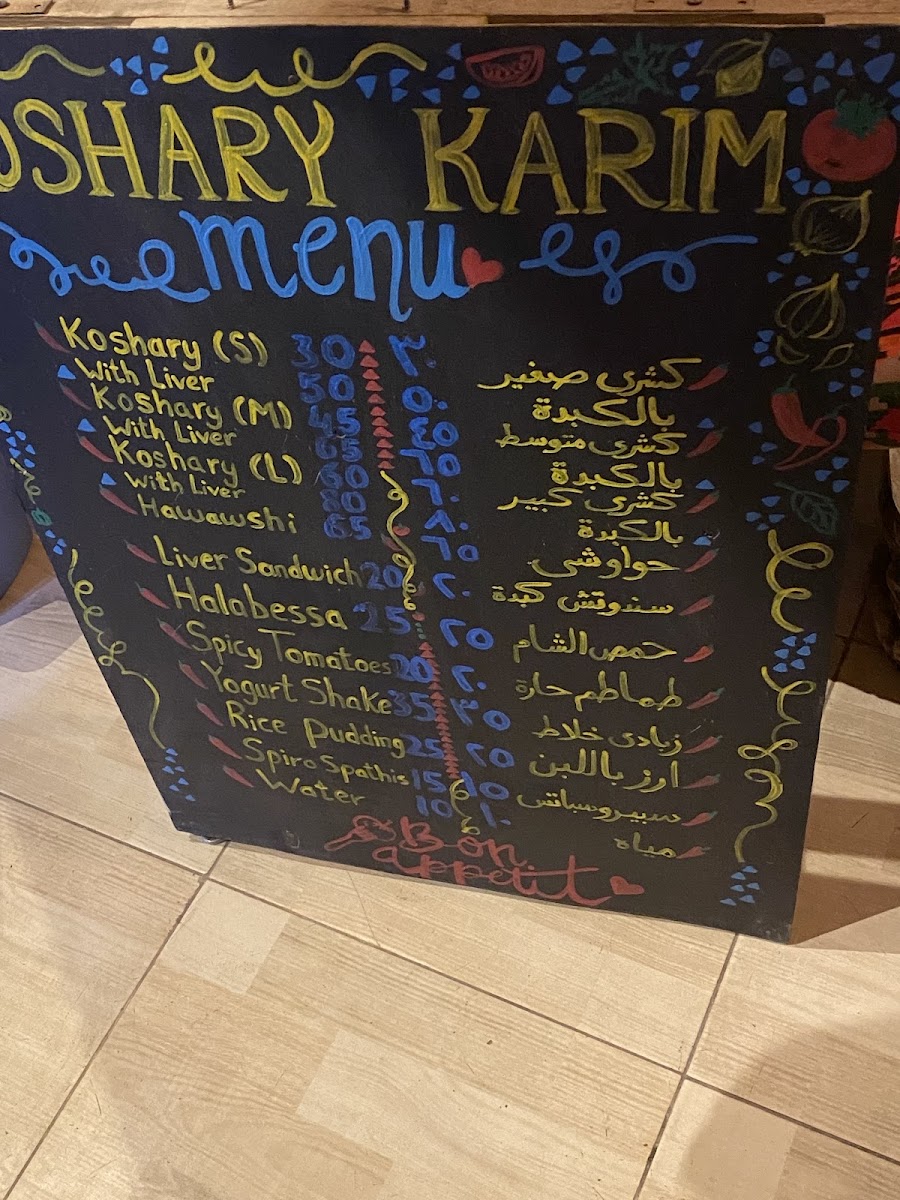 OSHARY KARIM
menu
Koshary (S) 30 ٣٠ كشرى صغير
With Liver 50 ٥٠ بالكبدة
Koshary (M) 45 ٤٥ كشرى متوسط
With Liver 65 ٦٥ بالكبدة
Koshary (L) 60 ٦٠ كشرى كبير
With Liver 80 ٨٠ بالكبدة
Hawawshi 65 ٦٥ حواوشى
Liver Sandwich 20 ٢٠ سندوتش كبدة
Halabessa 25 ٢٥ حمص الشام
Spicy Tomatoes 20 ٢٠ طماطم حارة
Yogurt Shake 35 ٣٥ زبادى خلاط
Rice Pudding 25 ٢٥ ارز باللبن
Spiro Spathis 15 ١٥ سبيروسباتس
Water 10 ١٠ مياه
Bon
appetit